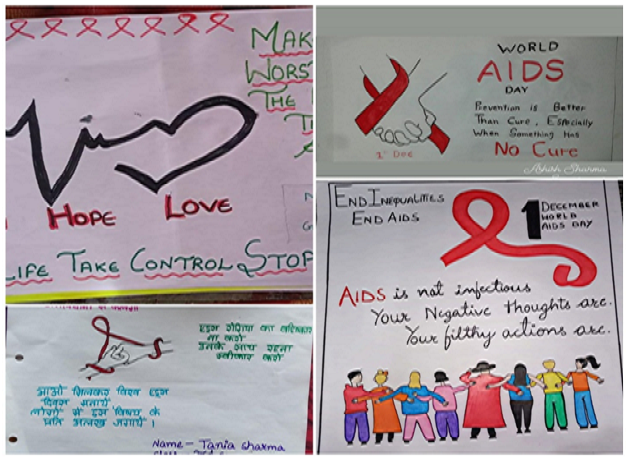 MAK
WORST
THE
HOPE LOVE
LIFE TAKE CONTROL STOP
WORLD
AIDS
DAY
Prevention is Better
Than Cure, Especially
When Something Has
No Cure
1st Dec
Ashish Sharma
एड्स रोगियों का बहिष्कार
ना करो
उनके साथ रहना
स्वीकार करो
आओ मिलकर विश्व एड्स
दिवस मनायें
लोगों में इस विषय के
प्रति अलख जगायें।
Name - Tania Sharma
END INEQUALITIES
END AIDS
1 DECEMBER
WORLD
AIDS DAY
AIDS is not infectious
Your Negative thoughts are.
Your filthy actions are.